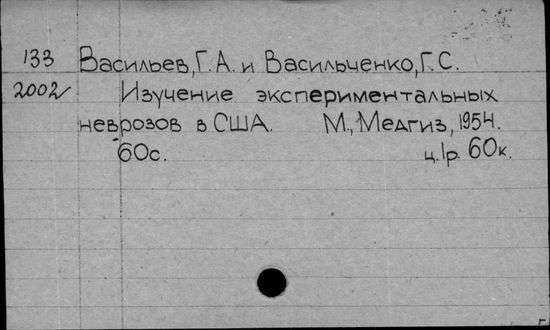 133 Васильев, Г. А. и Васильченко, Г. С.
2002 Изучение экспериментальных
неврозов в США. М., Медгиз, 1954.
60с. ц. 1р. 60к.